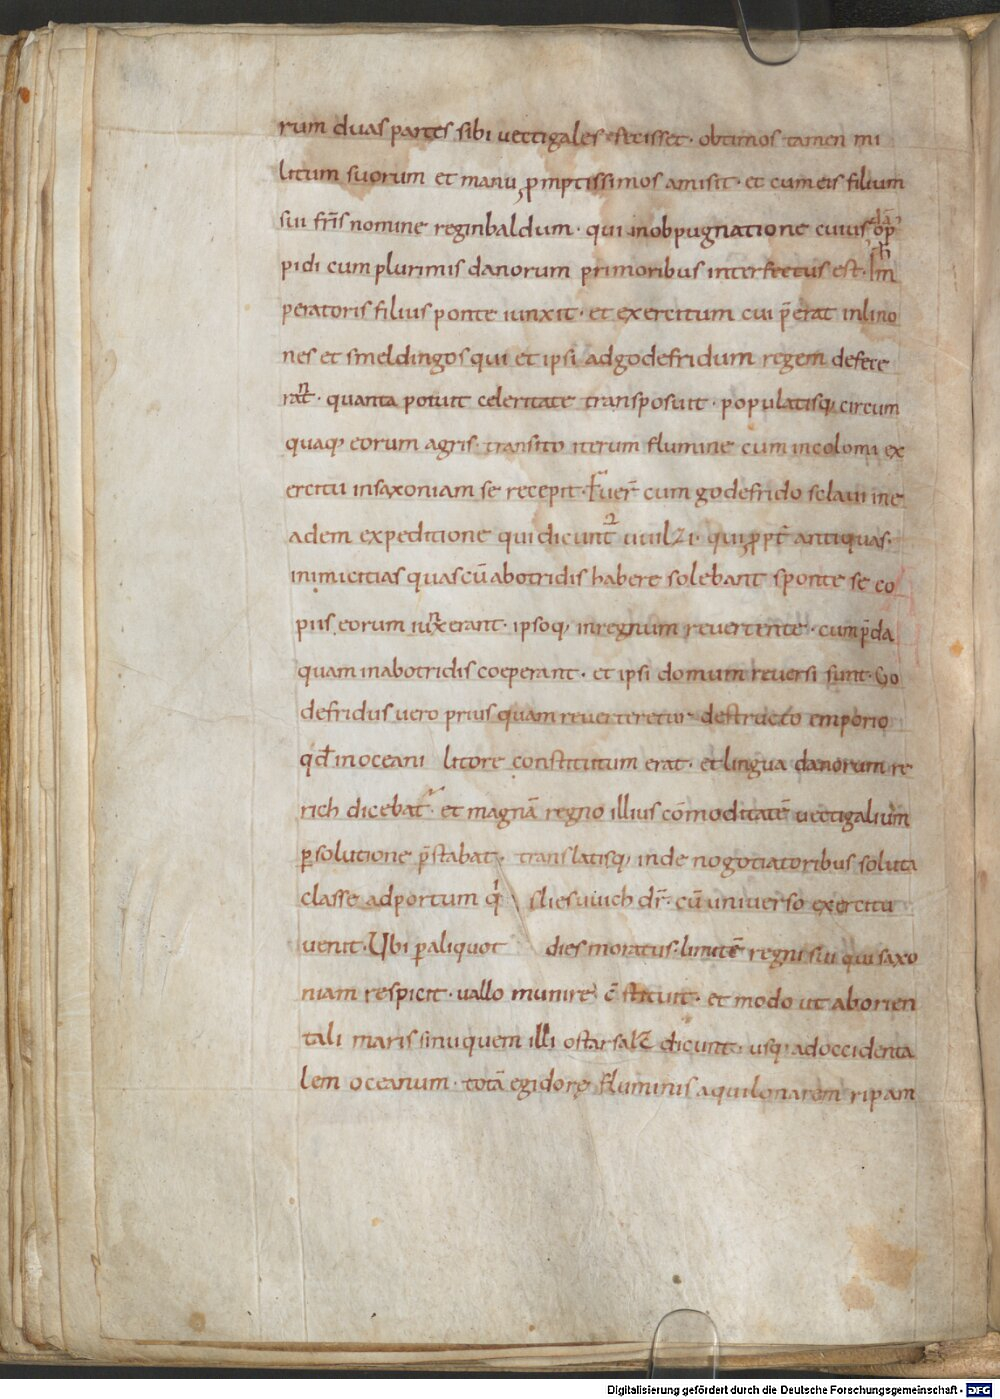 rum duas partes sibi uectigales efecisset · obtimos tamen mi
litum suorum et manu promptissimos amisit · et cum eis filium
sui fr̄is nomine reginbaldum · qui inobpugnatione cuiusdā op
pidi cum plurimis danorum primoribus interfectus est · Im
peratoris filius ponte iunxit · et exercitum cui p̄erat inlino
nes et smeldingos qui et ipsi adgodefridum regem defece
rant · quanta potuit celeritate transposuit · populatisq; circum
quaq; eorum agris · transito iterum flumine cum incolomi ex
ercitu insaxoniam se recepit · Fuer̄ cum godefrido sclaui ine
adem expeditione qui dicunt̄ uuilzi · qui ꝓpt̄ antiquas ·
inimicitias quas cū abotridis habere solebant sponte se co
piis eorum iunxerant · ipsoq; inregnum reuertente · cum p̄da
quam inabotridis coeperant · et ipsi domum reuersi sunt · Go
defridus uero prius quam reuerteretur destructo emporio
qđ inoceani litore constitutum erat · et lingua danorum re
rich dicebat · et magnā regno illius cōmoditatē uectigalium
ꝑsolutione p̄stabat · translatisq; inde nogotiatoribus soluta
classe adportum qͥ sliesuuich dr̄ · cū uniuerso exercitu
uenit · Ubi ꝑaliquot dies moratus · limitē regni sui qui saxo
niam respicit · uallo munire c̄stituit · et modo ut aborien
tali maris sinu quem illi ostarsalt dicunt · usq; adoccidenta
lem oceanum · totā egidore fluminis aquilonarem ripam
Digitalisierung gefördert durch die Deutsche Forschungsgemeinschaft - DFG